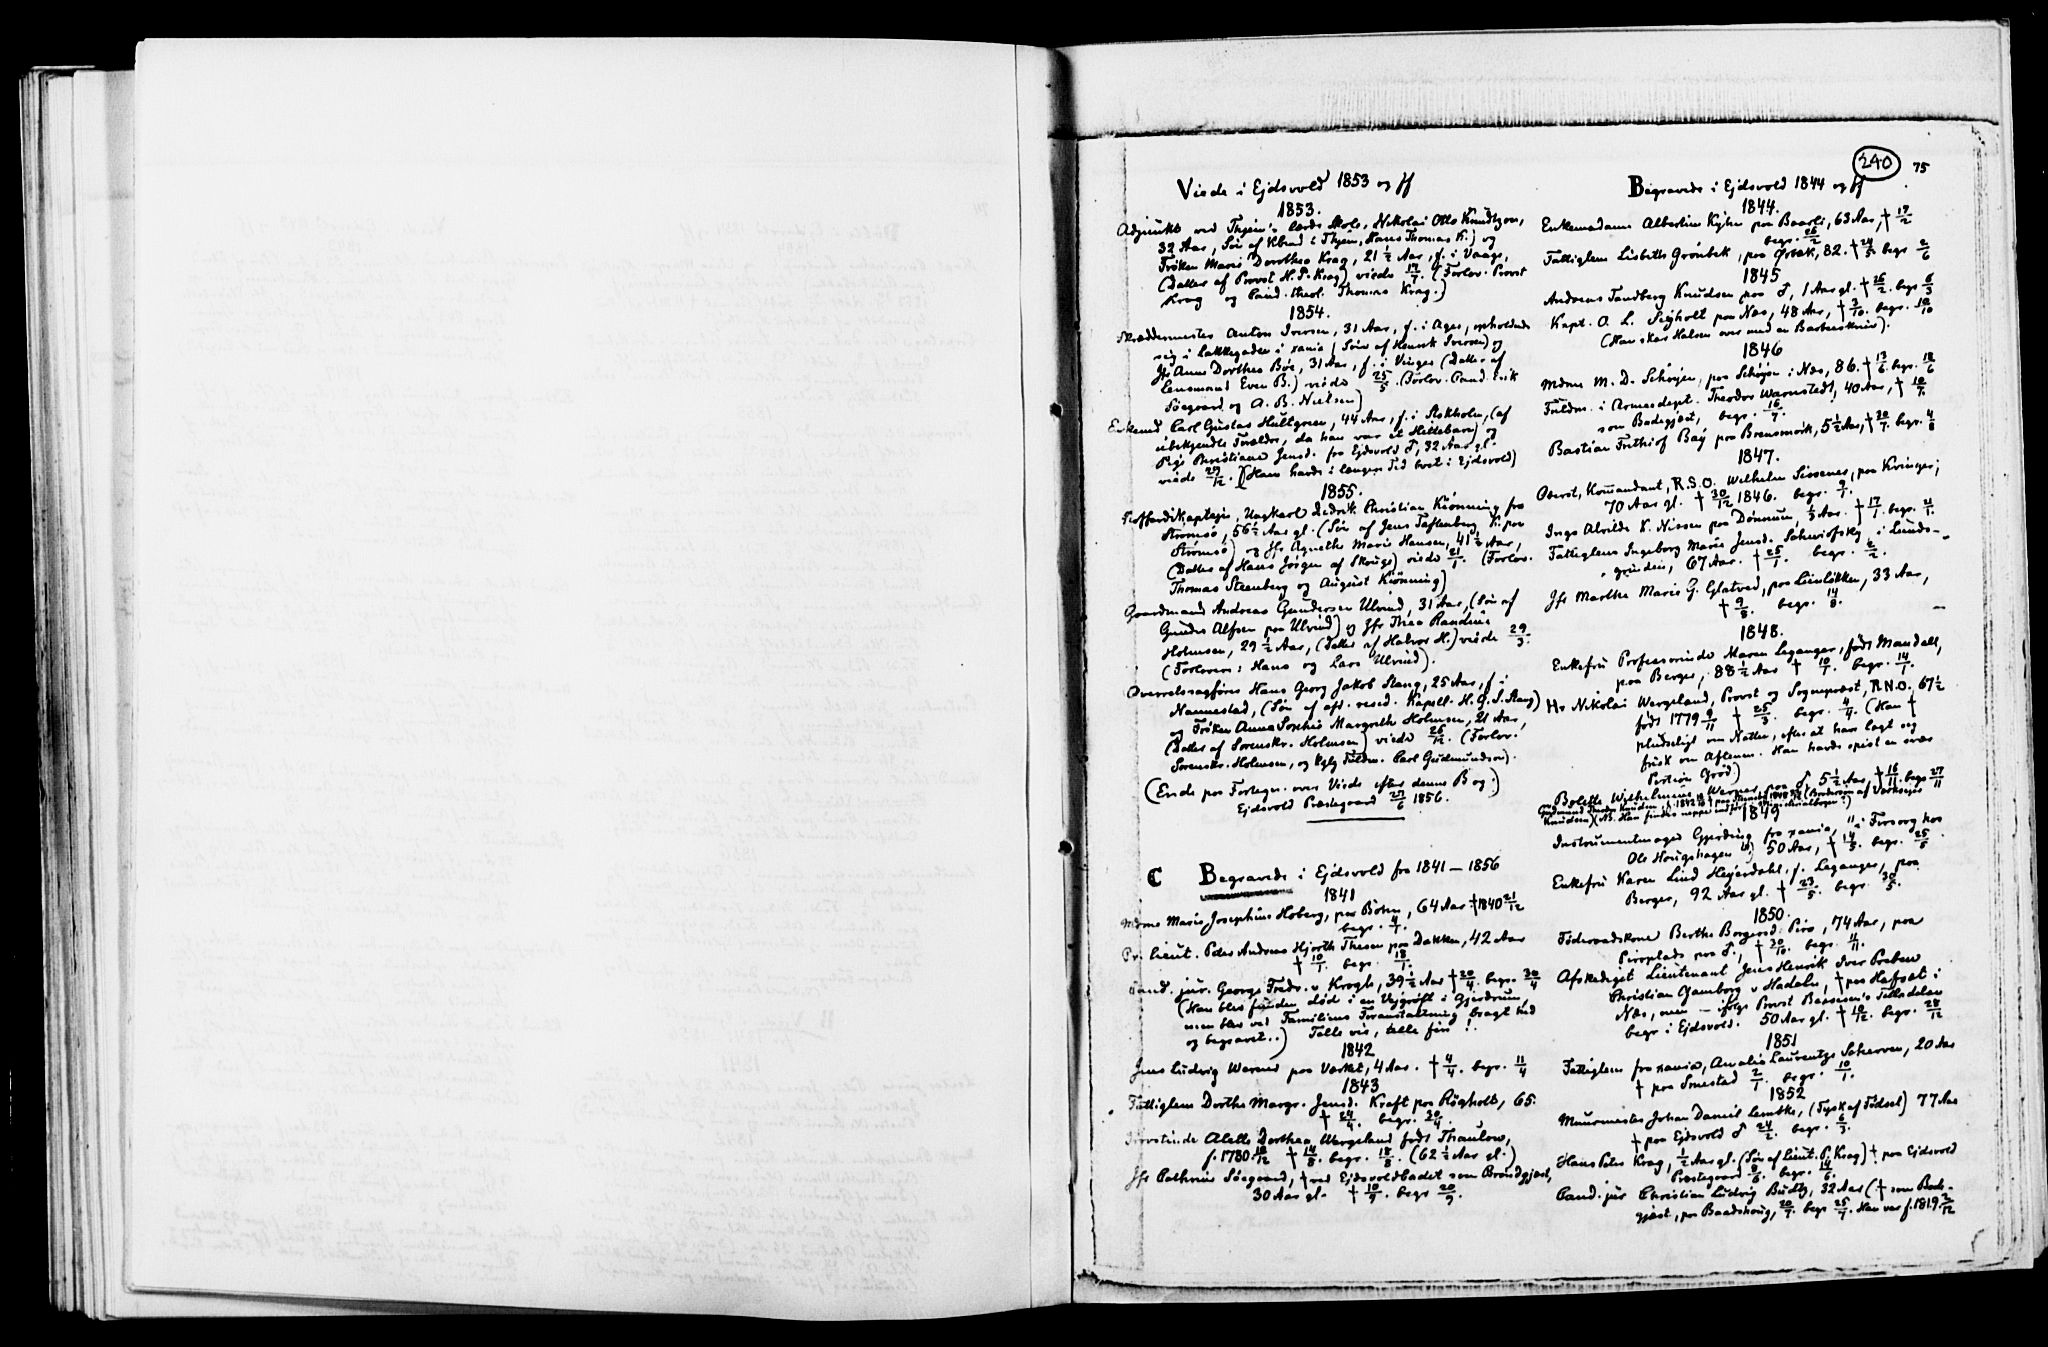 240 75
Viede i Ejdsvold 1853 og ff
1853.
Adjunkt ved Thjem's lærde Skole, Nikolai Otto Knudtzon,
32 Aar, Søn af Kbmd i Thjem, Hans Thomas K.) og
Frøken Marie Dorothea Krag, 21 1/2 Aar, f. i Vaage,
(Datter af Provst H. P. Krag) viede 17/7. (Forlov. Provst
Krag og Cand. theol. Thomas Krag.)
1854.
Skræddermester Anton Iversen, 31 Aar, f. i Ager, opholdende
sig i Lakkegaden i xania (Søn af Henrik Iversen) og
Jfr Anne Dorthea Bøe, 31 Aar, f. i Vinger (Datter af
Lensmand Even B.) viede 25/5. (Forlov. Cand. Erik
Søegaard og A. B. Nielsen)
Enkemd Carl Gustav Hultgreen, 44 Aar, f. i Stokholm, (af
ubekjendte Forældre, da han var et Hittebarn) og
Pige Christiane Jensd. fra Ejdsvold ♂, 32 Aar gl.
viede 29/12. (Han havde i længere Tid boet i Ejdsvold)
1855.
Koffardikaptajn, Ungkarl Didrik Christian Kiønning fra
Strømsø, 56 1/2 Aar gl. (Søn af Jens Toftenberg K. paa
Strømsø) og Jfr Agnethe Marie Hansen, 41 1/2 Aar,
(Datter af Hans Jørgen af Skouge) viede 21/1. (Forlov.
Thomas Steenberg og August Kiønning)
Gaardmand Andreas Gundersen Ulvind, 31 Aar, (Søn af
Gunder Alfsen paa Ulvind) og Jfr Thea Randine
Holmsen, 29 1/2 Aar, (Datter af Halvor H.) viede 29/3.
(Forlovere: Hans og Lars Ulvind).
Overretssagfører Hans Georg Jakob Stang, 25 Aar, f. i
Nannestad, (Søn af afd. resid. Kapell. H. G. J. Stang)
og Frøken Anna Sophie Margrethe Holmsen, 21 Aar,
(Datter af Sorenskr. Holmsen) viede 26/12. (Forlov.
Sorenskr. Holmsen, og Kglg Fuldm. Carl Gudmundsen).
(Ende paa Fortegn. over Viede efter denne Bog.)
Ejdsvold Præstegaard 27/6 1856.
C Begravede i Ejdsvold fra 1841 – 1856
1841
Mdme Marie Josephine Hoberg, paa Bøhn, 64 Aar † 1840 21/12
begr. 4/1.
Pr. Lieut. Peder Andreas Hjorth Thesen paa Dakken, 42 Aar
† 10/1. begr. 18/1.
Cand. jur. George Fredr. v Krogh, 39 1/2 Aar † 20/4. begr. 30/4
(Han blev funden død i en Vejgrøft i Gjerdrum,
men blev ved Familiens Foranstaltning bragt hid
og begravet..) Tølle vis, tølle fin!
1842
Jens Ludvig Werner paa Værket, 4 Aar. † 4/4. begr. 11/4
1843
Fattiglem Dorthe Margr. Jensd. Kraft paa Røgholt, 65.
† 24/4. begr. 30/4.
Provstinde Alette Dorthea Wergeland født Thaulow,
f. 1780 18/12 † 14/8. begr. 18/8. (62 1/2 Aar gl.)
Jfr Cathrine Søegaard, † ved Ejdsvoldbadet som Brøndgjæst,
30 Aar gl. † 10/9. begr. 20/9.
Begravede i Ejdsvold 1844 og ff
1844.
Enkemadame Albertine Kyhn paa Baarli, 63 Aar, † 17/2
begr. 26/2
Fattiglem Lisbeth Grønbek, paa Ørbæk, 82. † 24/5 begr. 2/6
1845
Andreas Tandberg Knudsen paa ♂, 1 Aar gl. † 26/2. begr. 6/3
Kapt. O. L. Seyholt paa Næs, 48 Aar, † 3/10. begr. 10/10
(Han skar Halsen over med en Barberkniv).
1846
Mdme M. D. Schøyen, paa Schøyen i Næs, 86. † 13/6. begr. 18/6
Fuldm. i Armeedept. Theodor Warnstedt, 40 Aar, † 10/7.
som Badegjæst, begr. 16/7.
Bastian Frithiof Bay paa Brensmork, 5 1/2 Aar, † 30/7. begr. 4/8
1847.
Oberst, Komandant, R.S.O. Wilhelm Sissener, paa Kvinger;
70 Aar gl. † 30/12 1846. begr. 9/1.
Inga Alvilde K. Nissen paa Dønnum, 1/3 Aar. † 17/1. begr. 21/1.
Fattiglem Ingeborg Marie Jensd. Schwiofsky i Lunds-
grinden, 67 Aar. † 25/1. begr. 2/2.
Jfr Marthe Marie G. Glatved, paa Lienløkken, 33 Aar,
† 9/8. begr. 14/8.
1848.
Enkefru Professorinde Maren Leganger, født Mandall,
paa Berger, 88 1/2 Aar † 10/1. begr. 14/1.
Hr Nikolai Wergeland, Provst og Sognepræst, R.N.O. 67 1/2
født 1779 9/11 † 25/3. begr. 4/4. (Han †
pludseligt om Natten, efter at have lagt sig
frisk om Aftenen. Han havde spist en svær
Portion Grød)
Bolette Wilhelmine Werner paa ♂ 5 1/2 Aar, † 16/11. begr. 27/11
1849
Instrumentmager Gjerding fra xania, "i Forsorg hos
Ole Hougshagen", 50 Aar, † 14/5. begr. 25/5
Enkefru Karen Lind Heyerdahl, f. Leganger, paa
Berger, 92 Aar gl. † 23/5. begr. 30/5.
1850.
Føderaadskone Berthe Borgersd. Piro, 74 Aar, paa
Piroplads paa ♂, † 30/10. begr. 11/11.
Afskediget Lieutenant Jens Henrik Iver Preben
Christian Gamborg v Hadeln, † paa Hafsæt i
Næs, men – ifølge Provst Baasesen's Tilladelse
begr. i Ejdsvold. 50 Aar gl. † 18/12. begr. 28/12
1851
Fattiglem fra xania, Amalia Laurentze Scherven, 20 Aar
† paa Smestad 2/1. begr. 10/1.
1852
Muurmester Johan Daniel Lembke, (Tysk af Fødsel) 77 Aar
† paa Ejdsvold ♂ 24/2. begr. 6/3.
Hans Peter Krag, 1/2 Aar gl. (Søn af Lieut. P. Krag) † paa Ejdsvold
Præstegaard 8/6. begr. 14/6.
Cand. jur Christian Ludvig Budtz, 32 Aar († som Bade-
gjæst, paa Baadshoug, 20/7. begr 25/7. Han var f. 1819 2/12